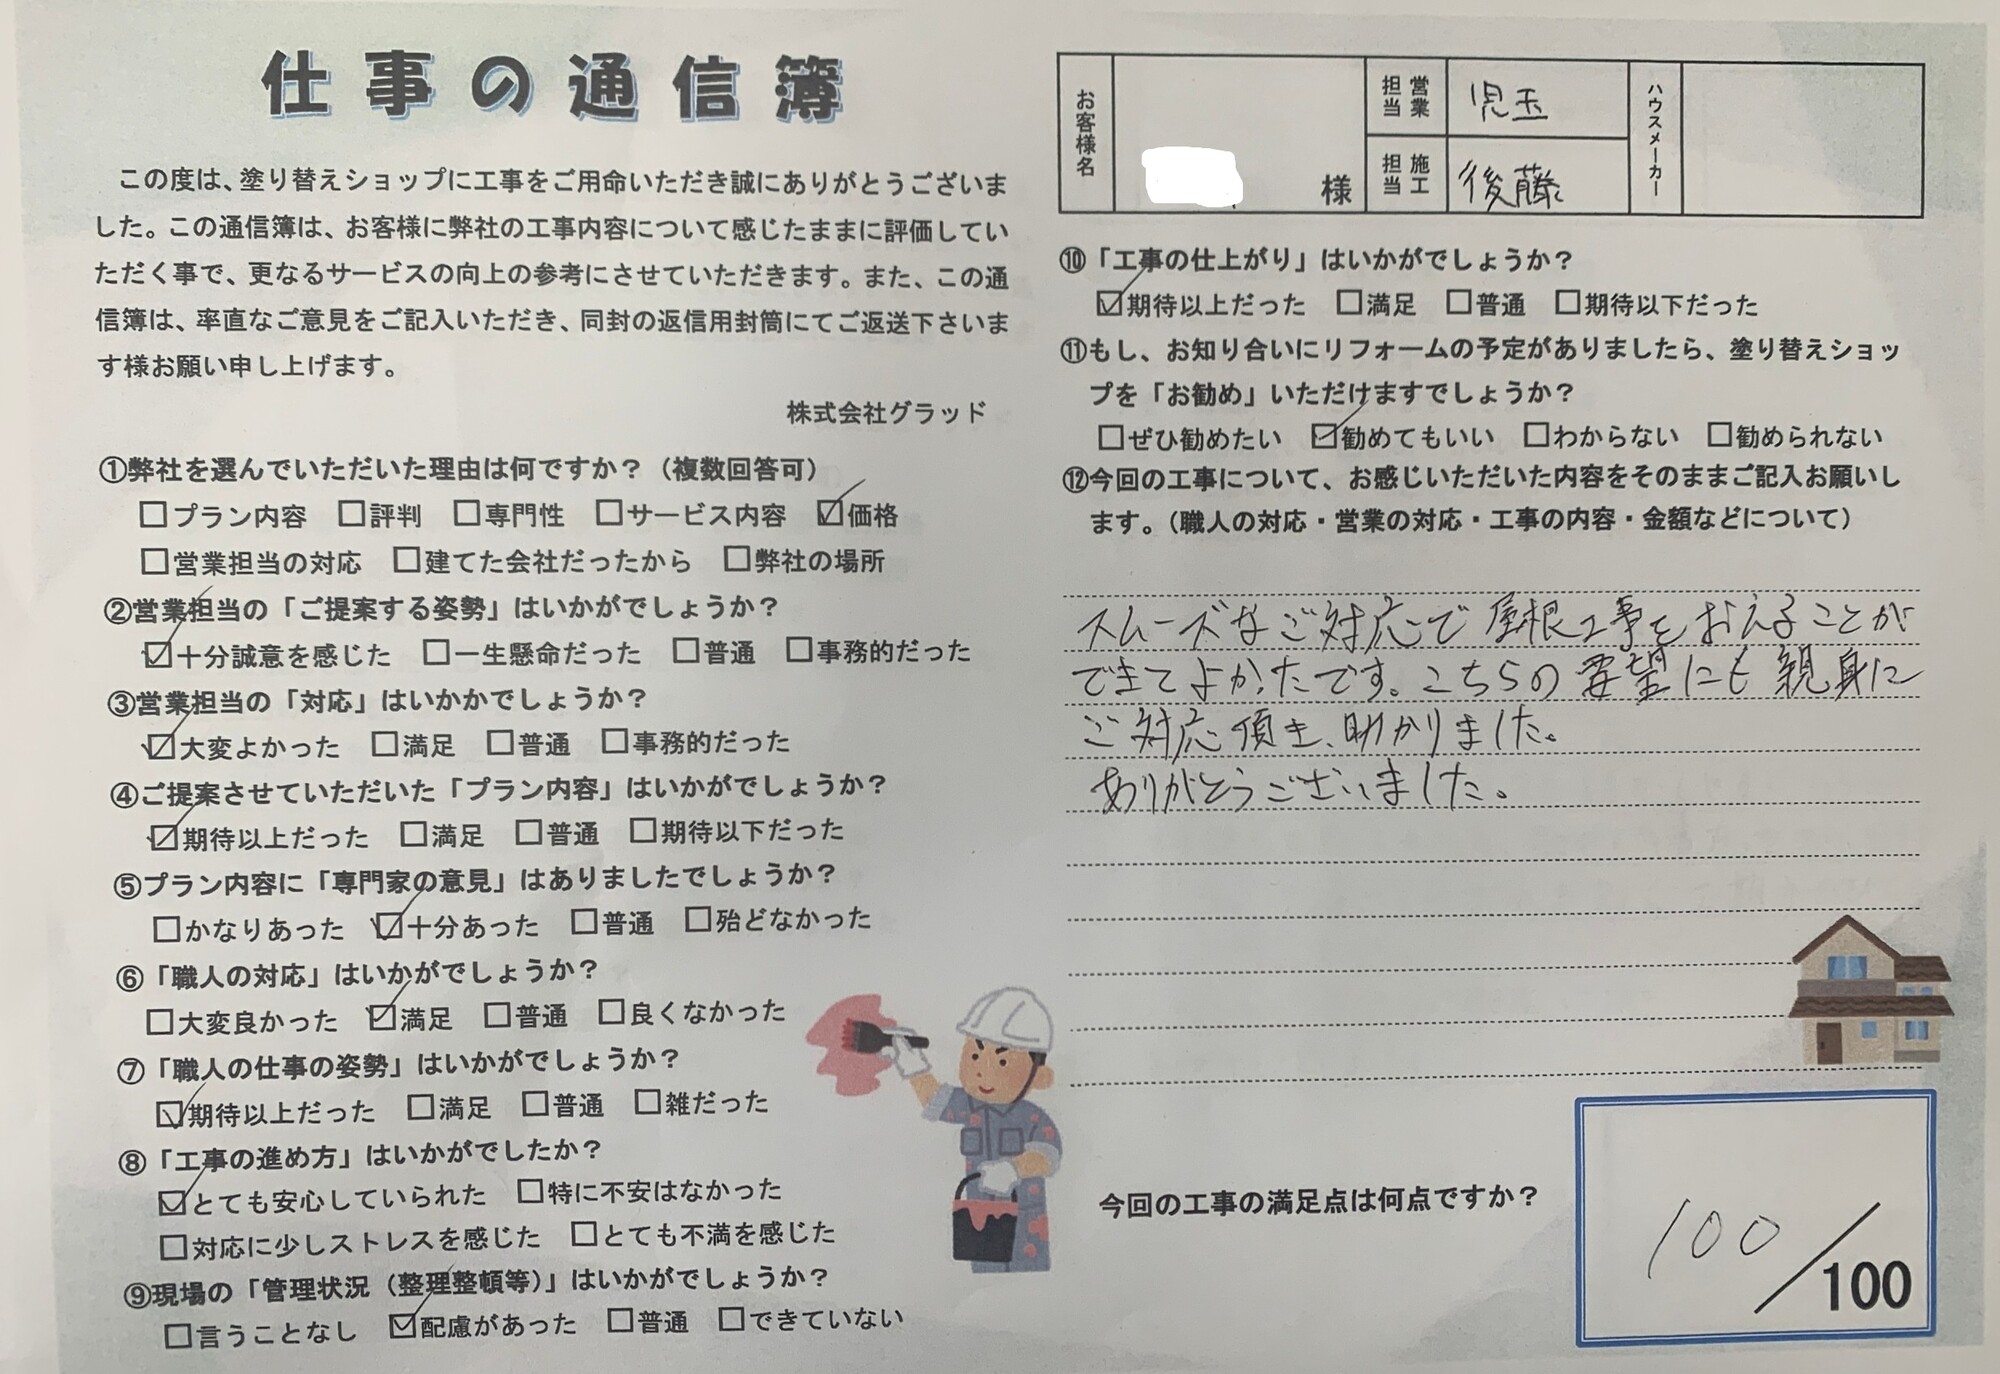 仕事の通信簿
この度は、塗り替えショップに工事をご用命いただき誠にありがとうございま
した。この通信簿は、お客様に弊社の工事内容について感じたままに評価してい
ただく事で、更なるサービスの向上の参考にさせていただきます。また、この通
信簿は、率直なご意見をご記入いただき、同封の返信用封筒にてご返送下さいま
す様お願い申し上げます。
株式会社グラッド
①弊社を選んでいただいた理由は何ですか？（複数回答可）
□プラン内容 □評判 □専門性 □サービス内容 ☑価格
□営業担当の対応 □建てた会社だったから □弊社の場所
②営業担当の「ご提案する姿勢」はいかがでしょうか？
☑十分誠意を感じた □一生懸命だった □普通 □事務的だった
③営業担当の「対応」はいかかでしょうか？
☑大変よかった □満足 □普通 □事務的だった
④ご提案させていただいた「プラン内容」はいかがでしょうか？
☑期待以上だった □満足 □普通 □期待以下だった
⑤プラン内容に「専門家の意見」はありましたでしょうか？
□かなりあった ☑十分あった □普通 □殆どなかった
⑥「職人の対応」はいかがでしょうか？
□大変良かった ☑満足 □普通 □良くなかった
⑦「職人の仕事の姿勢」はいかがでしょうか？
☑期待以上だった □満足 □普通 □雑だった
⑧「工事の進め方」はいかがでしたか？
☑とても安心していられた □特に不安はなかった
□対応に少しストレスを感じた □とても不満を感じた
⑨現場の「管理状況（整理整頓等）」はいかがでしょうか？
□言うことなし ☑配慮があった □普通 □できていない
お客様名 様
営業担当 児玉
施工担当 後藤
ハウスメーカー
⑩「工事の仕上がり」はいかがでしょうか？
☑期待以上だった □満足 □普通 □期待以下だった
⑪もし、お知り合いにリフォームの予定がありましたら、塗り替えショッ
プを「お勧め」いただけますでしょうか？
□ぜひ勧めたい ☑勧めてもいい □わからない □勧められない
⑫今回の工事について、お感じいただいた内容をそのままご記入お願いし
ます。（職人の対応・営業の対応・工事の内容・金額などについて）
スムーズなご対応で屋根工事をおえることが
できてよかったです。こちらの要望にも親身に
ご対応頂き、助かりました。
ありがとうございました。
今回の工事の満足点は何点ですか？
100/100